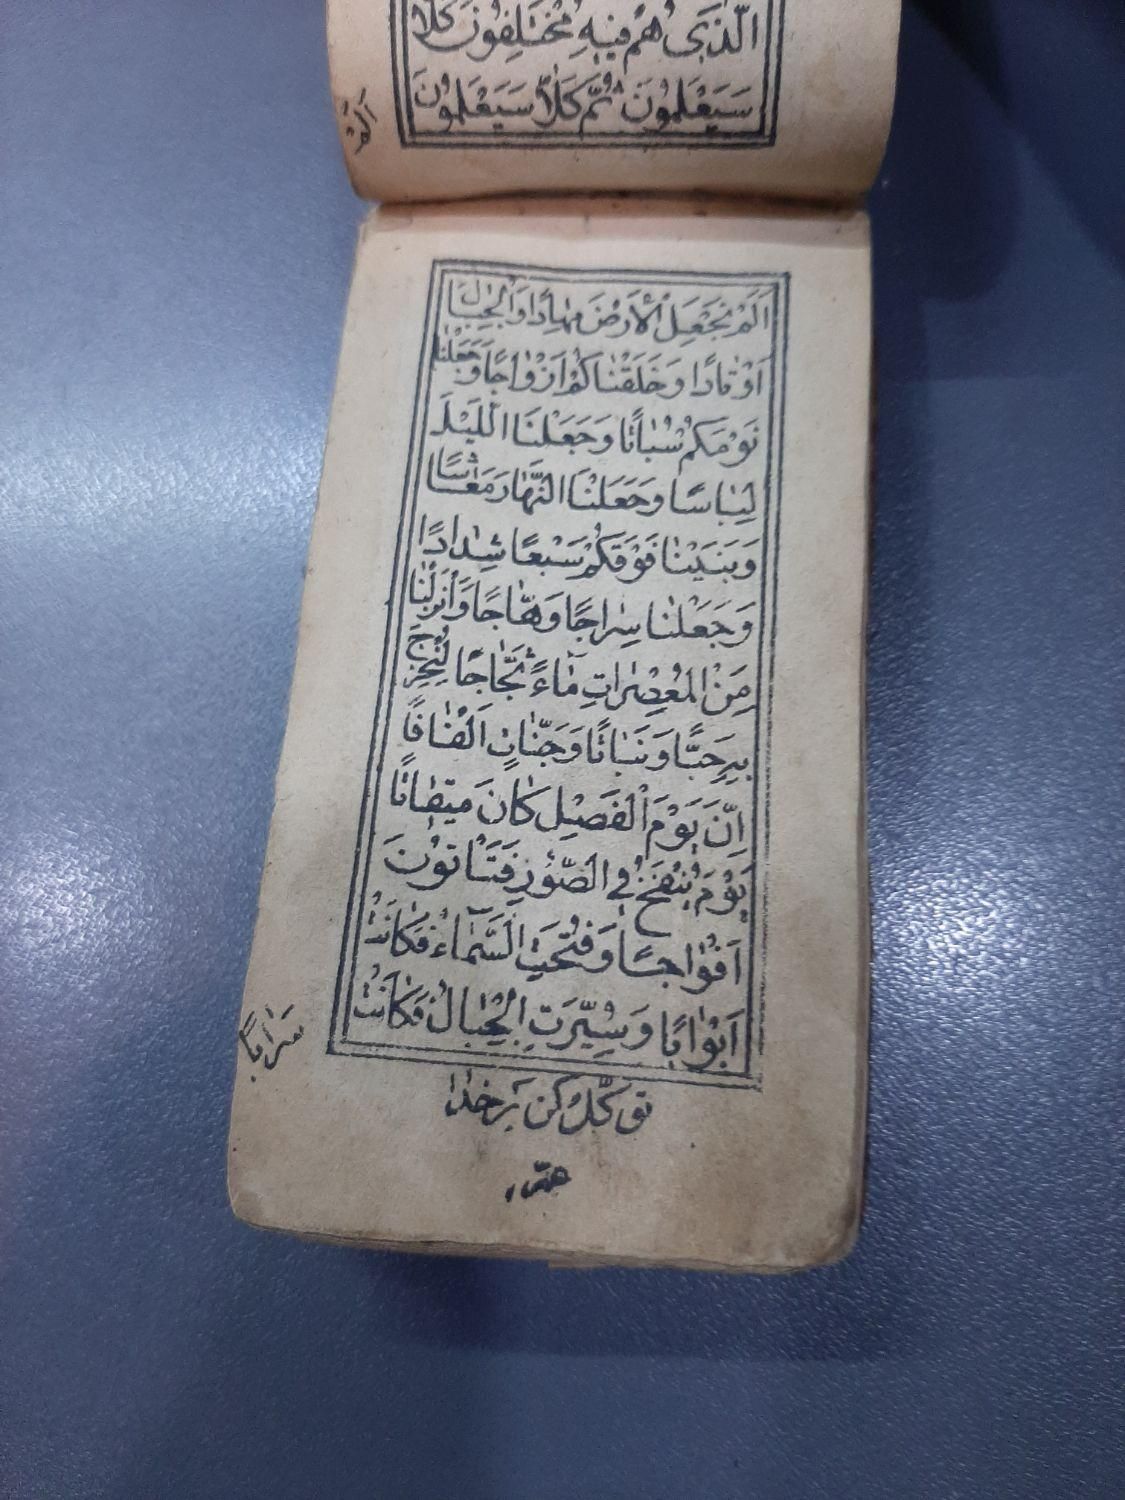 الَّذِی هُمْ فِیهِ مُخْتَلِفُونَ كَلَّا
سَیَعْلَمُونَ ثُمَّ كَلَّا سَیَعْلَمُونَ
اَلَمْ
اَلَمْ نَجْعَلِ الْاَرْضَ مِهَادًا وَالْجِبَالَ
اَوْتَادًا وَخَلَقْنَاكُمْ اَزْوَاجًا وَجَعَلْنَا
نَوْمَكُمْ سُبَاتًا وَجَعَلْنَا الَّلیْلَ
لِبَاسًا وَجَعَلْنَا النَّهَارَ مَعَاشًا
وَبَنَیْنَا فَوْقَكُمْ سَبْعًا شِدَادًا
وَجَعَلْنَا سِرَاجًا وَهَّاجًا وَاَنْزَلْنَا
مِنَ الْمُعْصِرَاتِ مَاءً ثَجَّاجًا لِنُخْرِجَ
بِهِ حَبًّا وَنَبَاتًا وَجَنَّاتٍ اَلْفَافًا
اِنَّ یَوْمَ الْفَصْلِ كَانَ مِیقَاتًا
یَوْمَ یُنْفَخُ فِی الصُّورِ فَتَأْتُونَ
اَفْوَاجًا وَفُتِحَتِ السَّمَاءُ فَكَانَتْ
اَبْوَابًا وَسُیِّرَتِ الْجِبَالُ فَكَانَتْ
سَرَابًا
توكّل كن بر خدا